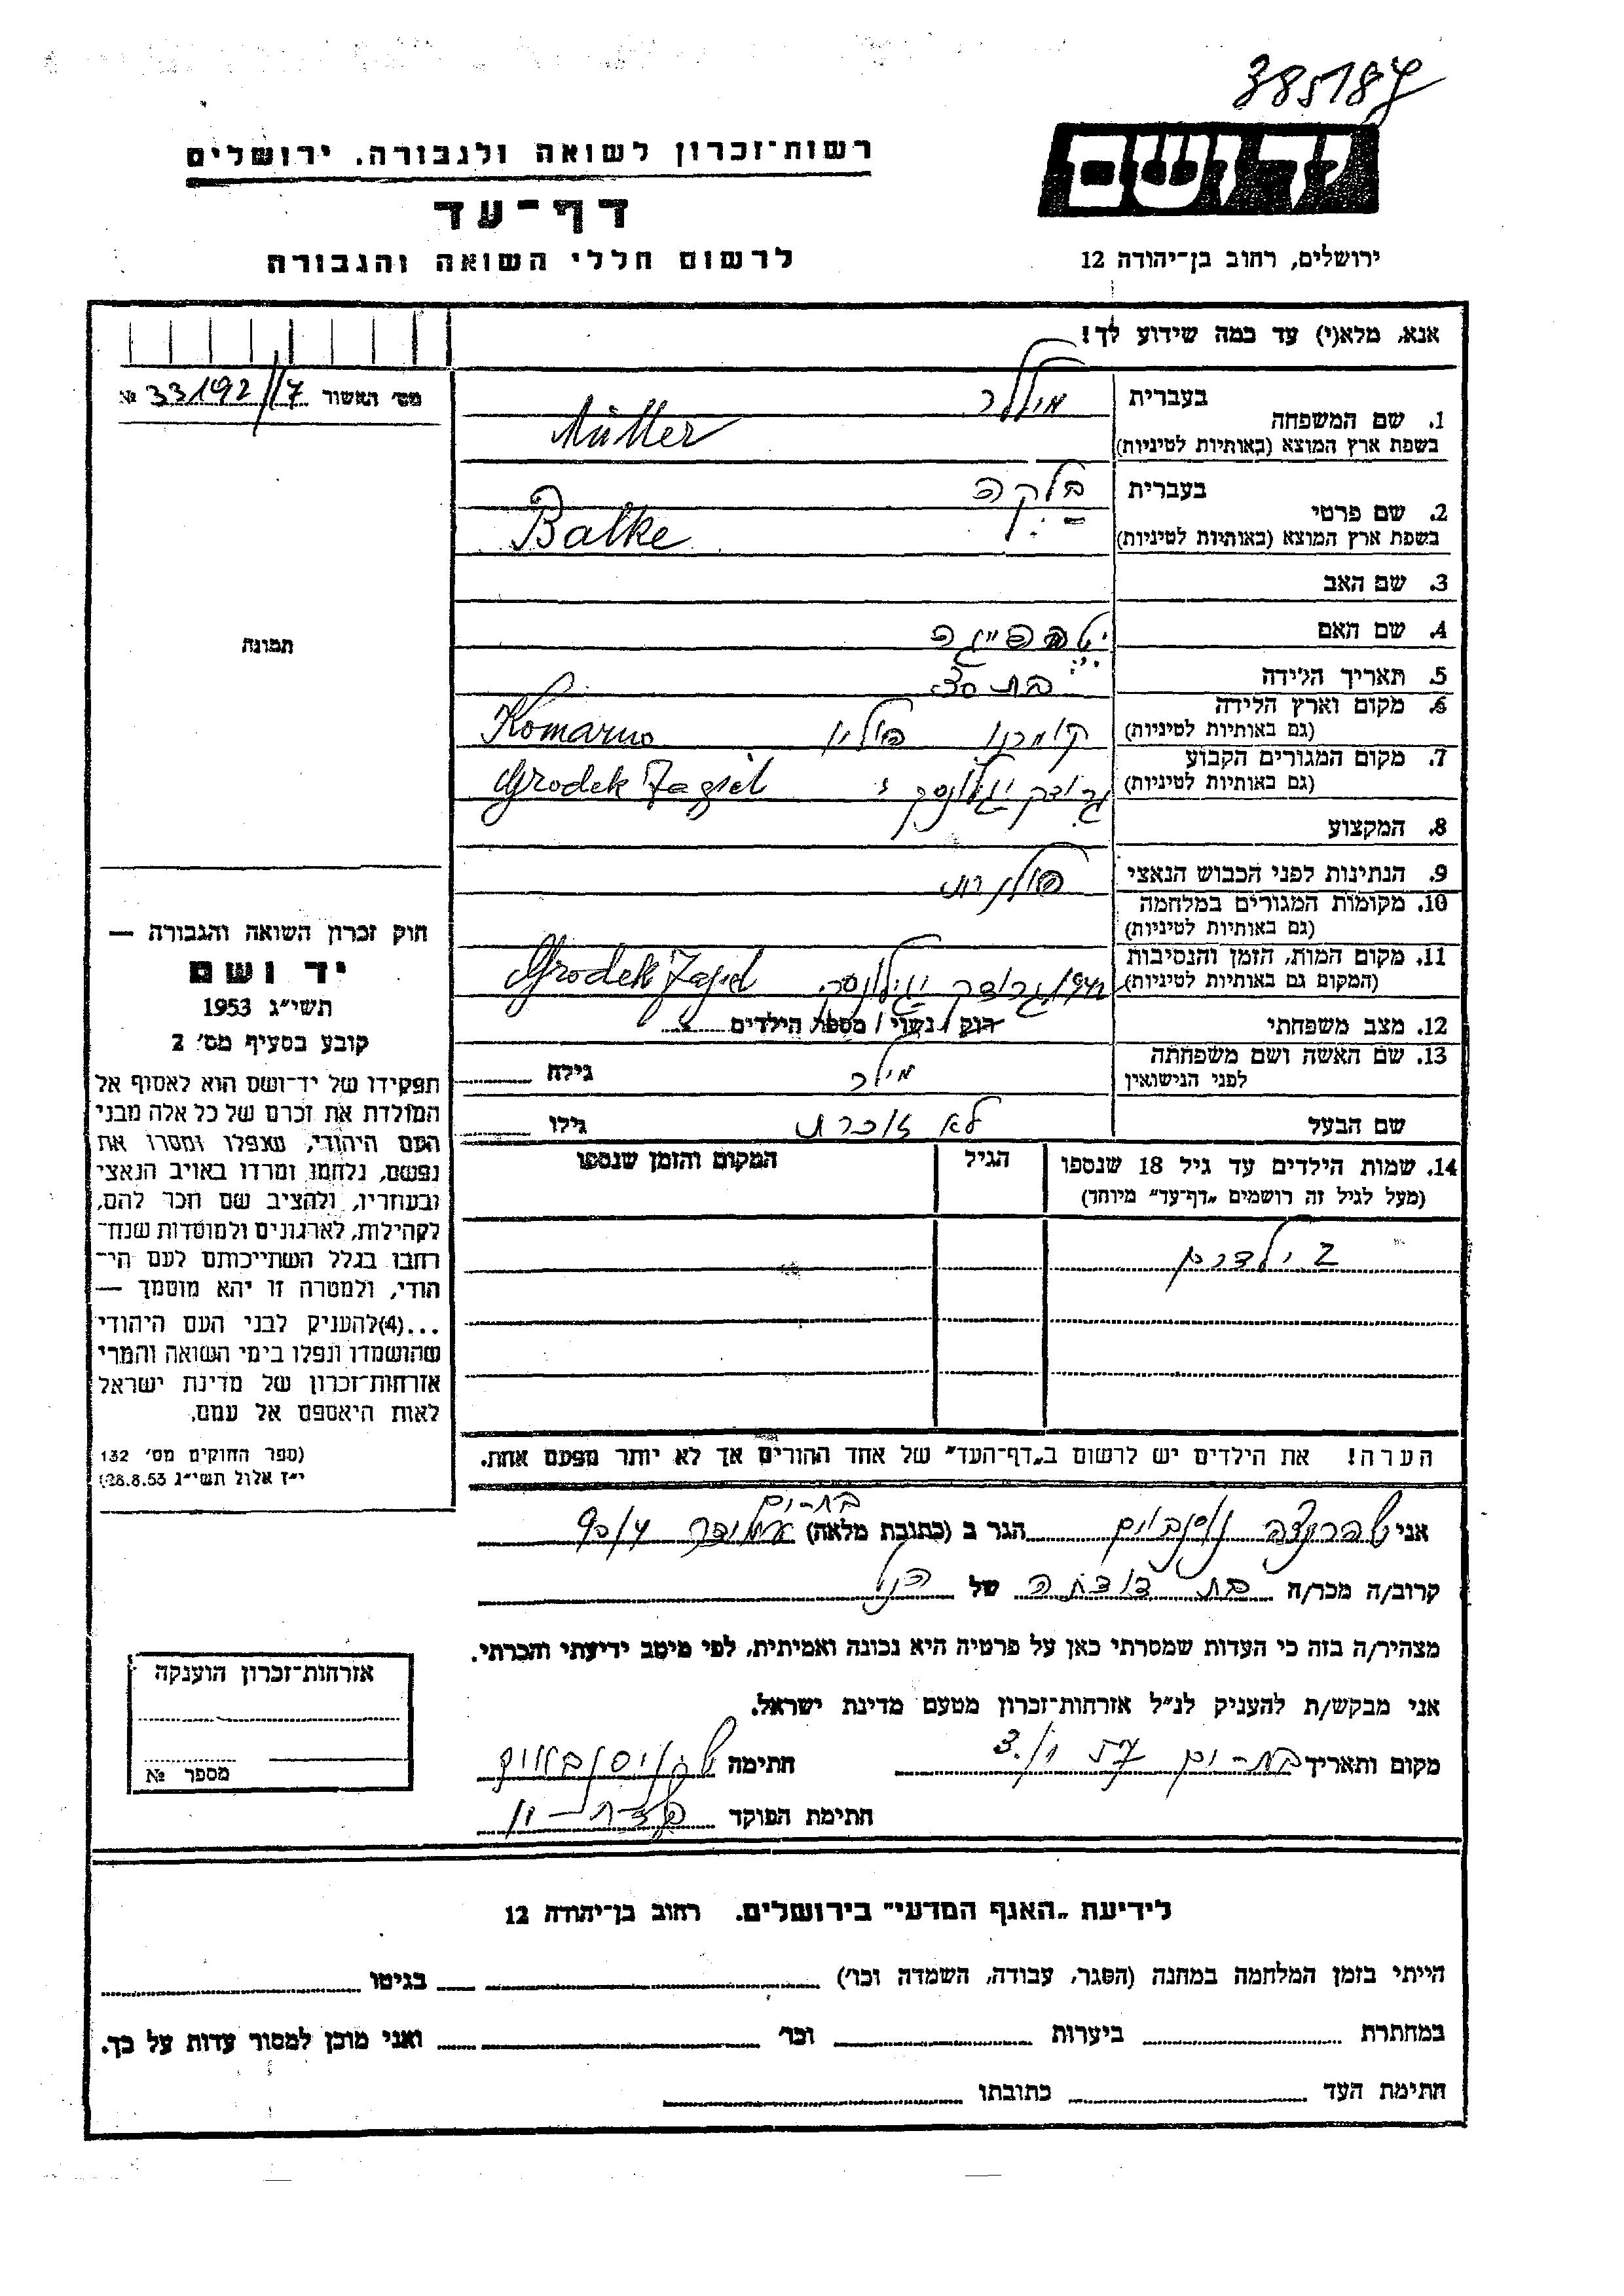 385187
יד ושם
ירושלים, רחוב בן־יהודה 12
רשות־זכרון לשואה ולגבורה. ירושלים
דף־עד
לרשום חללי השואה והגבורה
אנא, מלא(י) עד כמה שידוע לך!
מס׳ האשור 33192/17 №
1. שם המשפחה
בעברית מילר
בשפת ארץ המוצא (באותיות לטיניות) Müller
2. שם פרטי
בעברית בלקה
בשפת ארץ המוצא (באותיות לטיניות) Balke
3. שם האב
4. שם האם
5. תאריך הלידה
6. מקום וארץ הלידה
(גם באותיות לטיניות) קומרנו פולין Komarno
7. מקום המגורים הקבוע
(גם באותיות לטיניות) גרודק יגילונסקי Grodek Jagiel
8. המקצוע
9. הנתינות לפני הכבוש הנאצי פולנית
10. מקומות המגורים במלחמה
(גם באותיות לטיניות)
11. מקום המות, הזמן והנסיבות
(המקום גם באותיות לטיניות) 1942 גרודק יגילונסקי Grodek Jagiel
12. מצב משפחתי רוק / נשוי / מספר הילדים
13. שם האשה ושם משפחתה
לפני הנישואין מילר גילה
שם הבעל לא זוכרת גילו
14. שמות הילדים עד גיל 18 שנספו
(מעל לגיל זה רושמים „דף־עד” מיוחד)
הגיל
המקום והזמן שנספו
2 ילדים
הערה! את הילדים יש לרשום ב„דף־העד” של אחד ההורים אך לא יותר מפעם אחת.
תמונה
חוק זכרון השואה והגבורה —
יד ושם
תשי״ג 1953
קובע בסעיף מס׳ 2
תפקידו של יד־ושם הוא לאסוף אל
המולדת את זכרם של כל אלה מבני
העם היהודי, שנפלו ומסרו את
נפשם, נלחמו ומרדו באויב הנאצי
ובעוזריו, ולהציב שם וזכר להם,
לקהילות, לארגונים ולמוסדות שנח־
רבו בגלל השתייכותם לעם הי־
הודי, ולמטרה זו יהא מוסמך —
...(4) להעניק לבני העם היהודי
שהושמדו ונפלו בימי השואה והמרי
אזרחות־זכרון של מדינת ישראל
לאות היאספם אל עמם.
(ספר החוקים מס׳ 132
י״ז אלול תשי״ג 28.8.53)
אני ניסנבוים הגר ב (כתובת מלאה) בת־ים 90/4
קרוב/ה מכר/ה בת דודתה של הנ״ל
מצהיר/ה בזה כי העדות שמסרתי כאן על פרטיה היא נכונה ואמיתית, לפי מיטב ידיעתי והכרתי.
אני מבקש/ת להעניק לנ״ל אזרחות־זכרון מטעם מדינת ישראל.
מקום ותאריך בת־ים חתימה
חתימת הפוקד
אזרחות־זכרון הוענקה
מספר №
לידיעת „האגף המדעי” בירושלים. רחוב בן־יהודה 12
הייתי בזמן המלחמה במחנה (הסגר, עבודה, השמדה וכו׳) בגיטו
במחתרת ביערות וכו׳ ואני מוכן למסור עדות על כך.
חתימת העד כתובתו